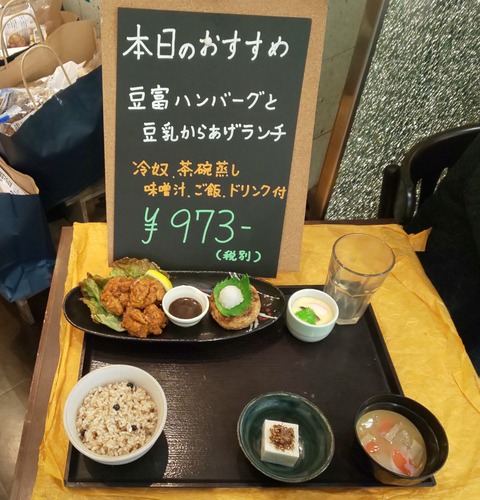 本日のおすすめ
豆富ハンバーグと
豆乳からあげランチ
冷奴、茶碗蒸し
味噌汁、ご飯、ドリンク付
¥973-
(税別)